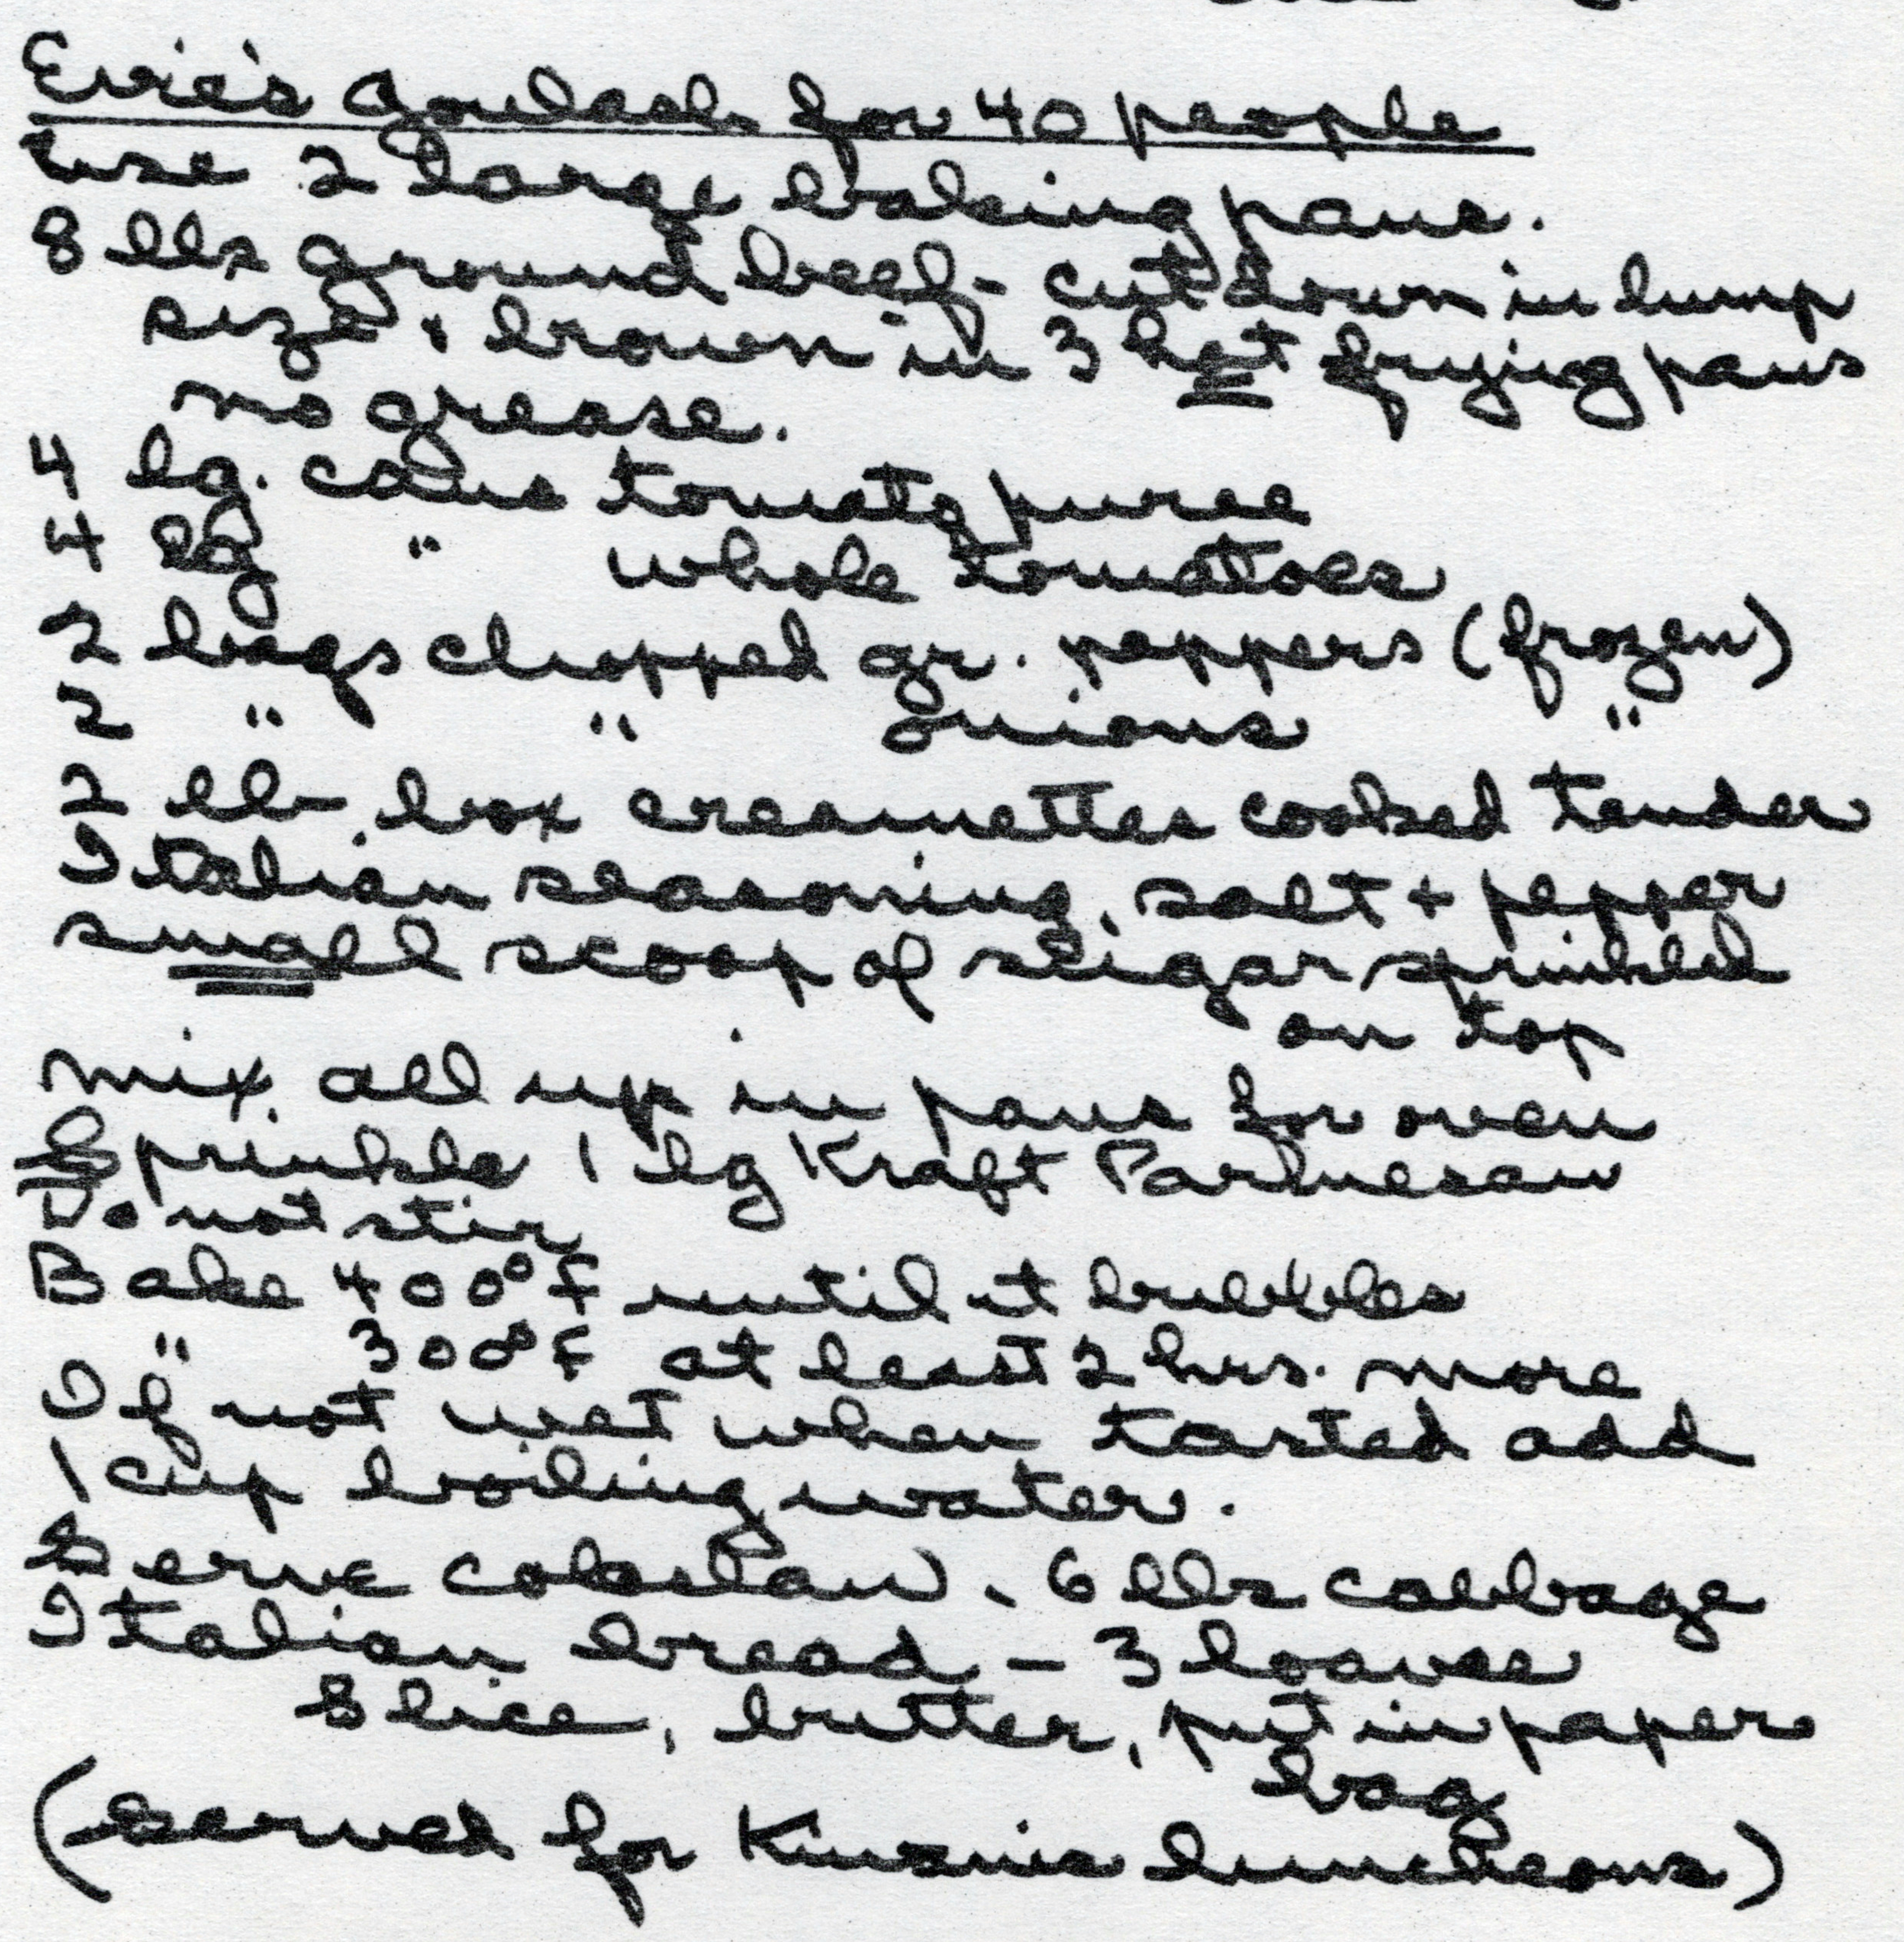 Evie's Goulash for 40 people
Use 2 large baking pans.
8 lbs ground beef - cut down in lump
size + brown in 3 hot frying pans
no grease.
4 lg. cans tomato puree
4 lg " whole tomatoes
2 bags chopped gr. peppers (frozen)
2 " " onions "
2 lb. box creamettes cooked tender
Italian seasoning, salt + pepper
small scoop of sugar sprinkled
on top
mix all up in pans for oven
Sprinkle 1 lg Kraft Parmesan
Do not stir
Bake 400° F until it bubbles
" 300° F at least 2 hrs. more
If not wet when tasted add
1 cup boiling water.
Serve coleslaw - 6 lbs cabbage
Italian bread - 3 loaves
Slice, butter, put in paper
bag
(Served for luncheons)